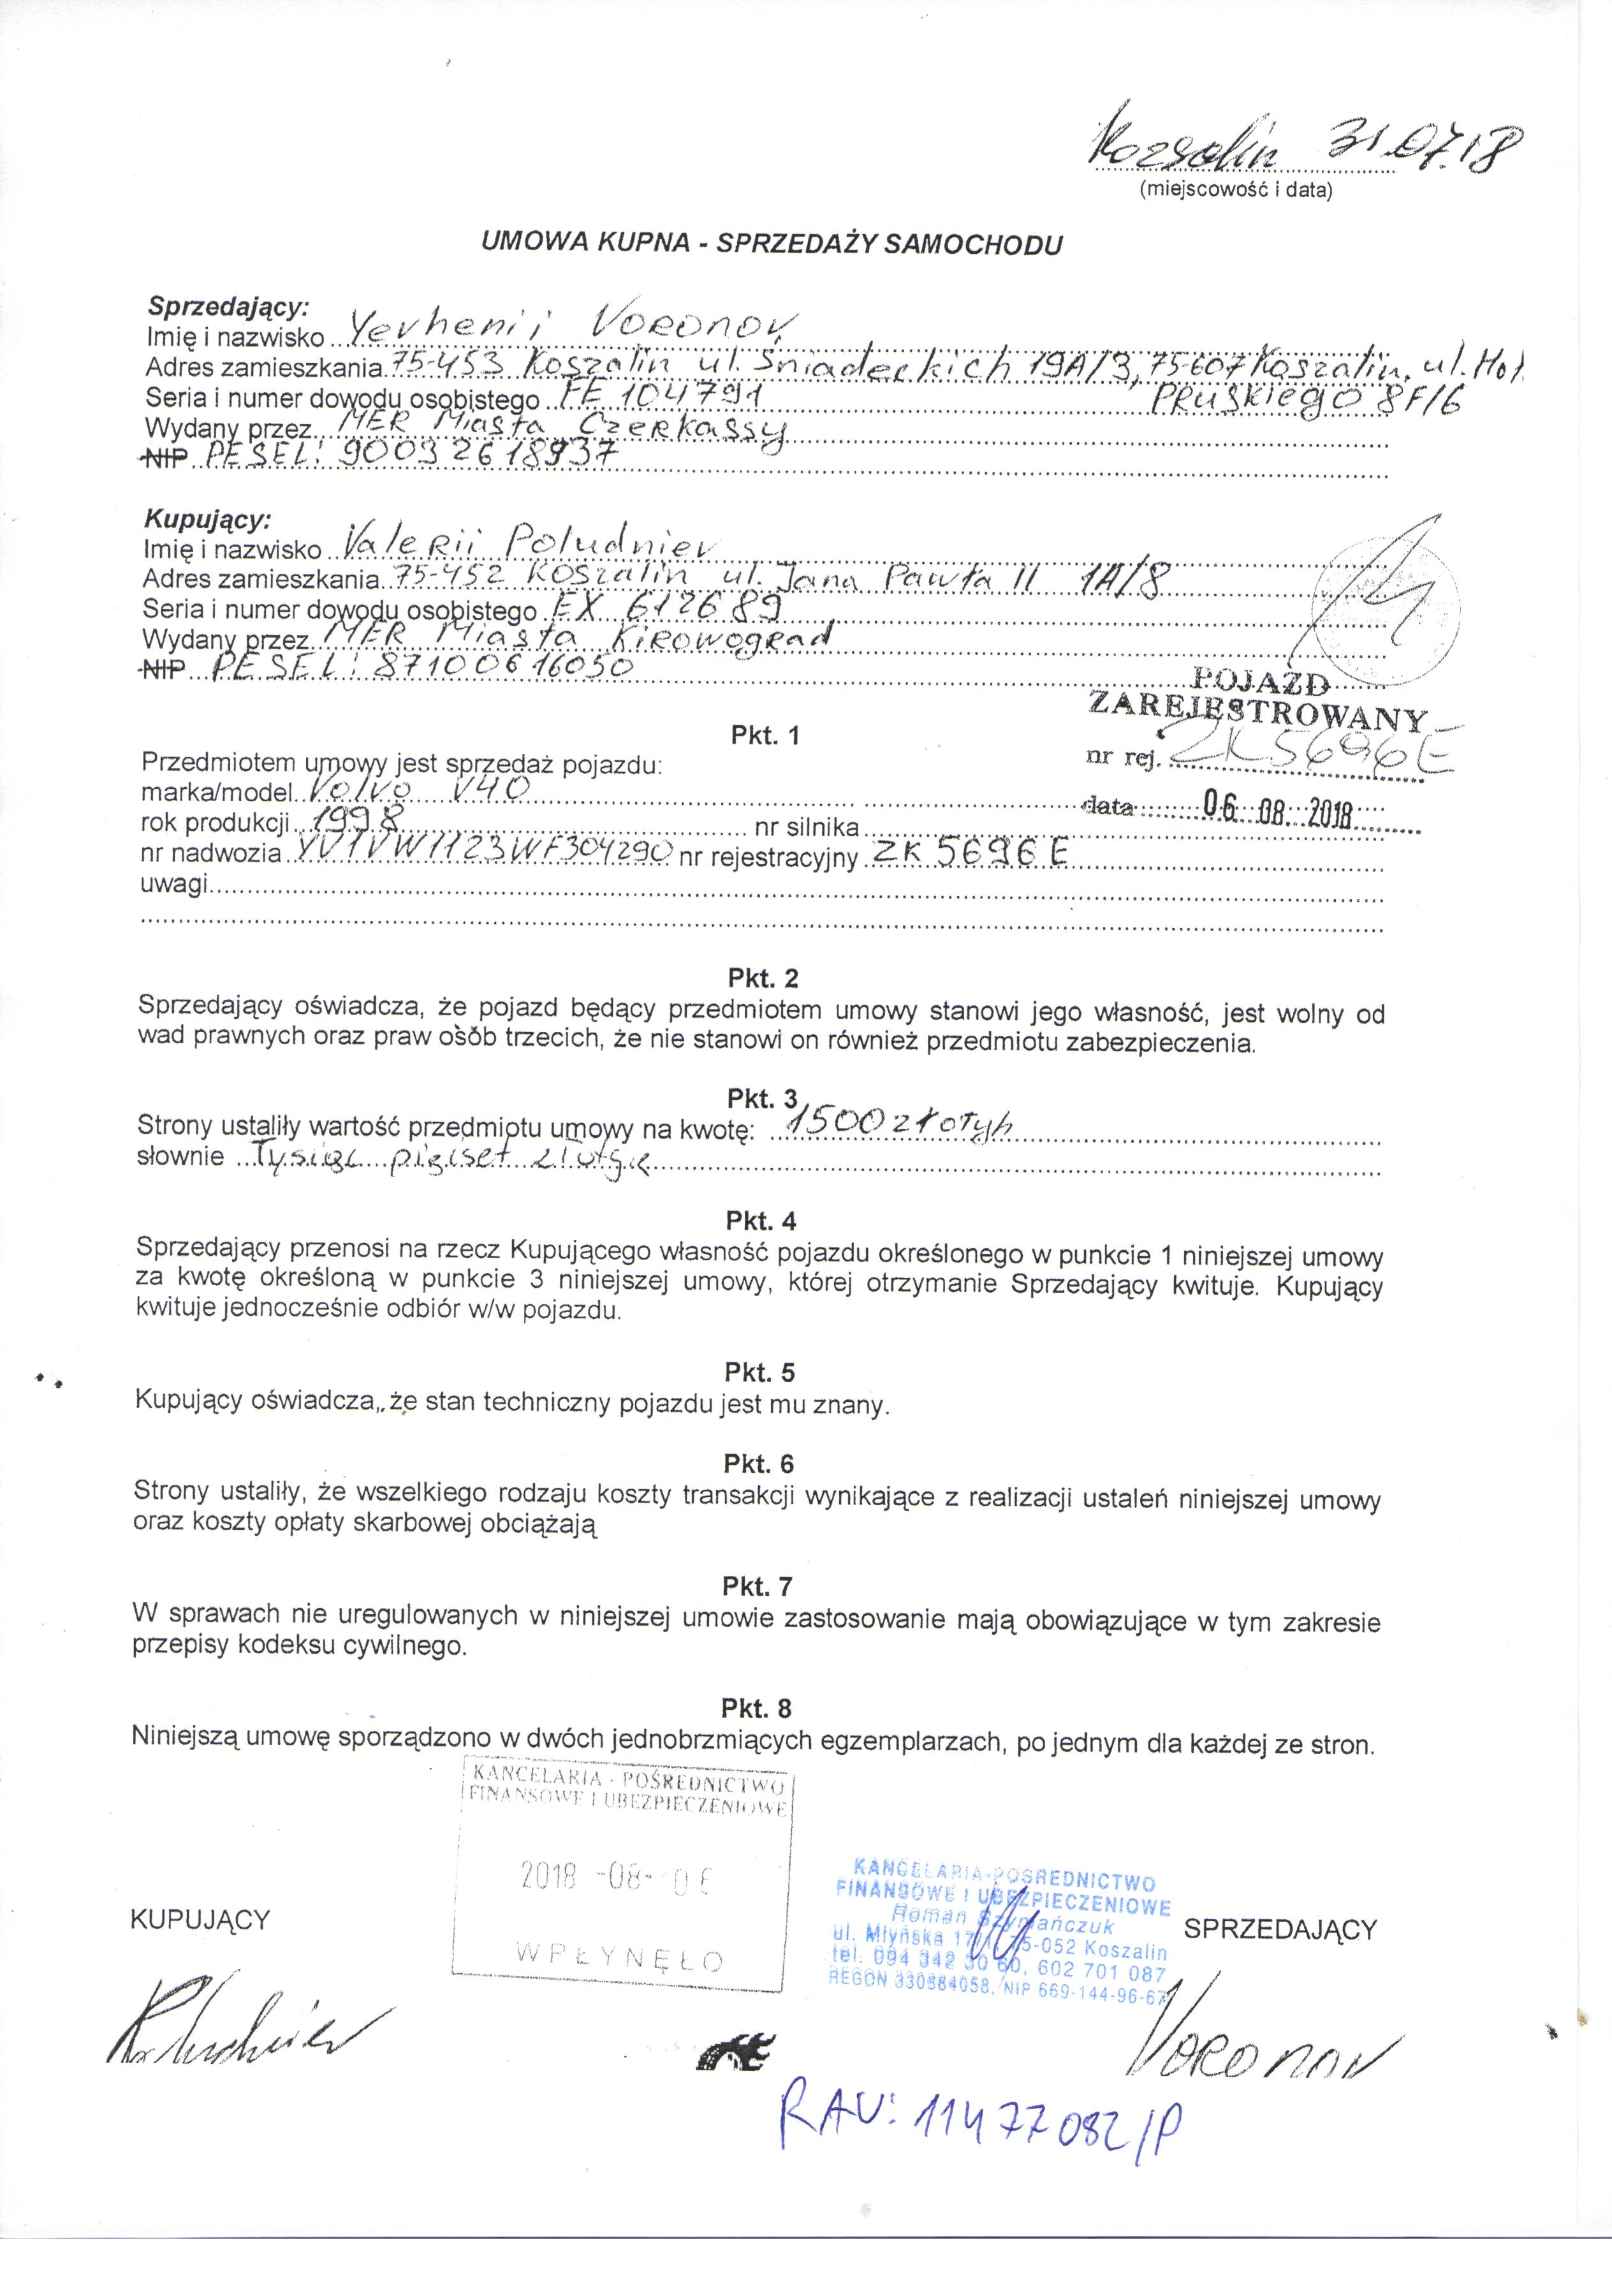 Kozsalin 31.07.18
(miejscowość i data)
UMOWA KUPNA - SPRZEDAŻY SAMOCHODU
Sprzedający:
Imię i nazwisko Yevhenii Voronov
Adres zamieszkania 75-453 Koszalin ul. Śniadeckich 19A/3, 75-607 Koszalin, ul. Hol.
Seria i numer dowodu osobistego FE 104791 PRuskiego 8F/6
Wydany przez MER Miasta Czerkassy
NIP PESEL: 90032618937
Kupujący:
Imię i nazwisko Valerii Poludniev
Adres zamieszkania 75-452 Koszalin ul. Jana Pawła II 1A/8
Seria i numer dowodu osobistego EX 612689
Wydany przez MER Miasta Kirowograd
NIP PESEL: 87100616050
POJAZD
ZAREJESTROWANY
nr rej. ZK5696E
data 06. 08. 2018
Pkt. 1
Przedmiotem umowy jest sprzedaż pojazdu:
marka/model Volvo V40
rok produkcji 1998 nr silnika
nr nadwozia YV1VW1123WF304290 nr rejestracyjny ZK 5696E
uwagi
Pkt. 2
Sprzedający oświadcza, że pojazd będący przedmiotem umowy stanowi jego własność, jest wolny od
wad prawnych oraz praw osób trzecich, że nie stanowi on również przedmiotu zabezpieczenia.
Pkt. 3
Strony ustaliły wartość przedmiotu umowy na kwotę: 1500 złotyh
słownie Tysiąc pięcset
Pkt. 4
Sprzedający przenosi na rzecz Kupującego własność pojazdu określonego w punkcie 1 niniejszej umowy
za kwotę określoną w punkcie 3 niniejszej umowy, której otrzymanie Sprzedający kwituje. Kupujący
kwituje jednocześnie odbiór w/w pojazdu.
Pkt. 5
Kupujący oświadcza, że stan techniczny pojazdu jest mu znany.
Pkt. 6
Strony ustaliły, że wszelkiego rodzaju koszty transakcji wynikające z realizacji ustaleń niniejszej umowy
oraz koszty opłaty skarbowej obciążają
Pkt. 7
W sprawach nie uregulowanych w niniejszej umowie zastosowanie mają obowiązujące w tym zakresie
przepisy kodeksu cywilnego.
Pkt. 8
Niniejszą umowę sporządzono w dwóch jednobrzmiących egzemplarzach, po jednym dla każdej ze stron.
KANCELARIA - POŚREDNICTWO
FINANSOWE I UBEZPIECZENIOWE
2018 -08- 06
WPŁYNĘŁO
KANCELARIA-POŚREDNICTWO
FINANSOWE I UBEZPIECZENIOWE
Roman Szymańczuk
ul. Młyńska 17/1, 75-052 Koszalin
tel. 094 342 50 60, 602 701 087
REGON 330984058, NIP 669-144-96-67
KUPUJĄCY
SPRZEDAJĄCY
Voronov
RAV: 11477082/P